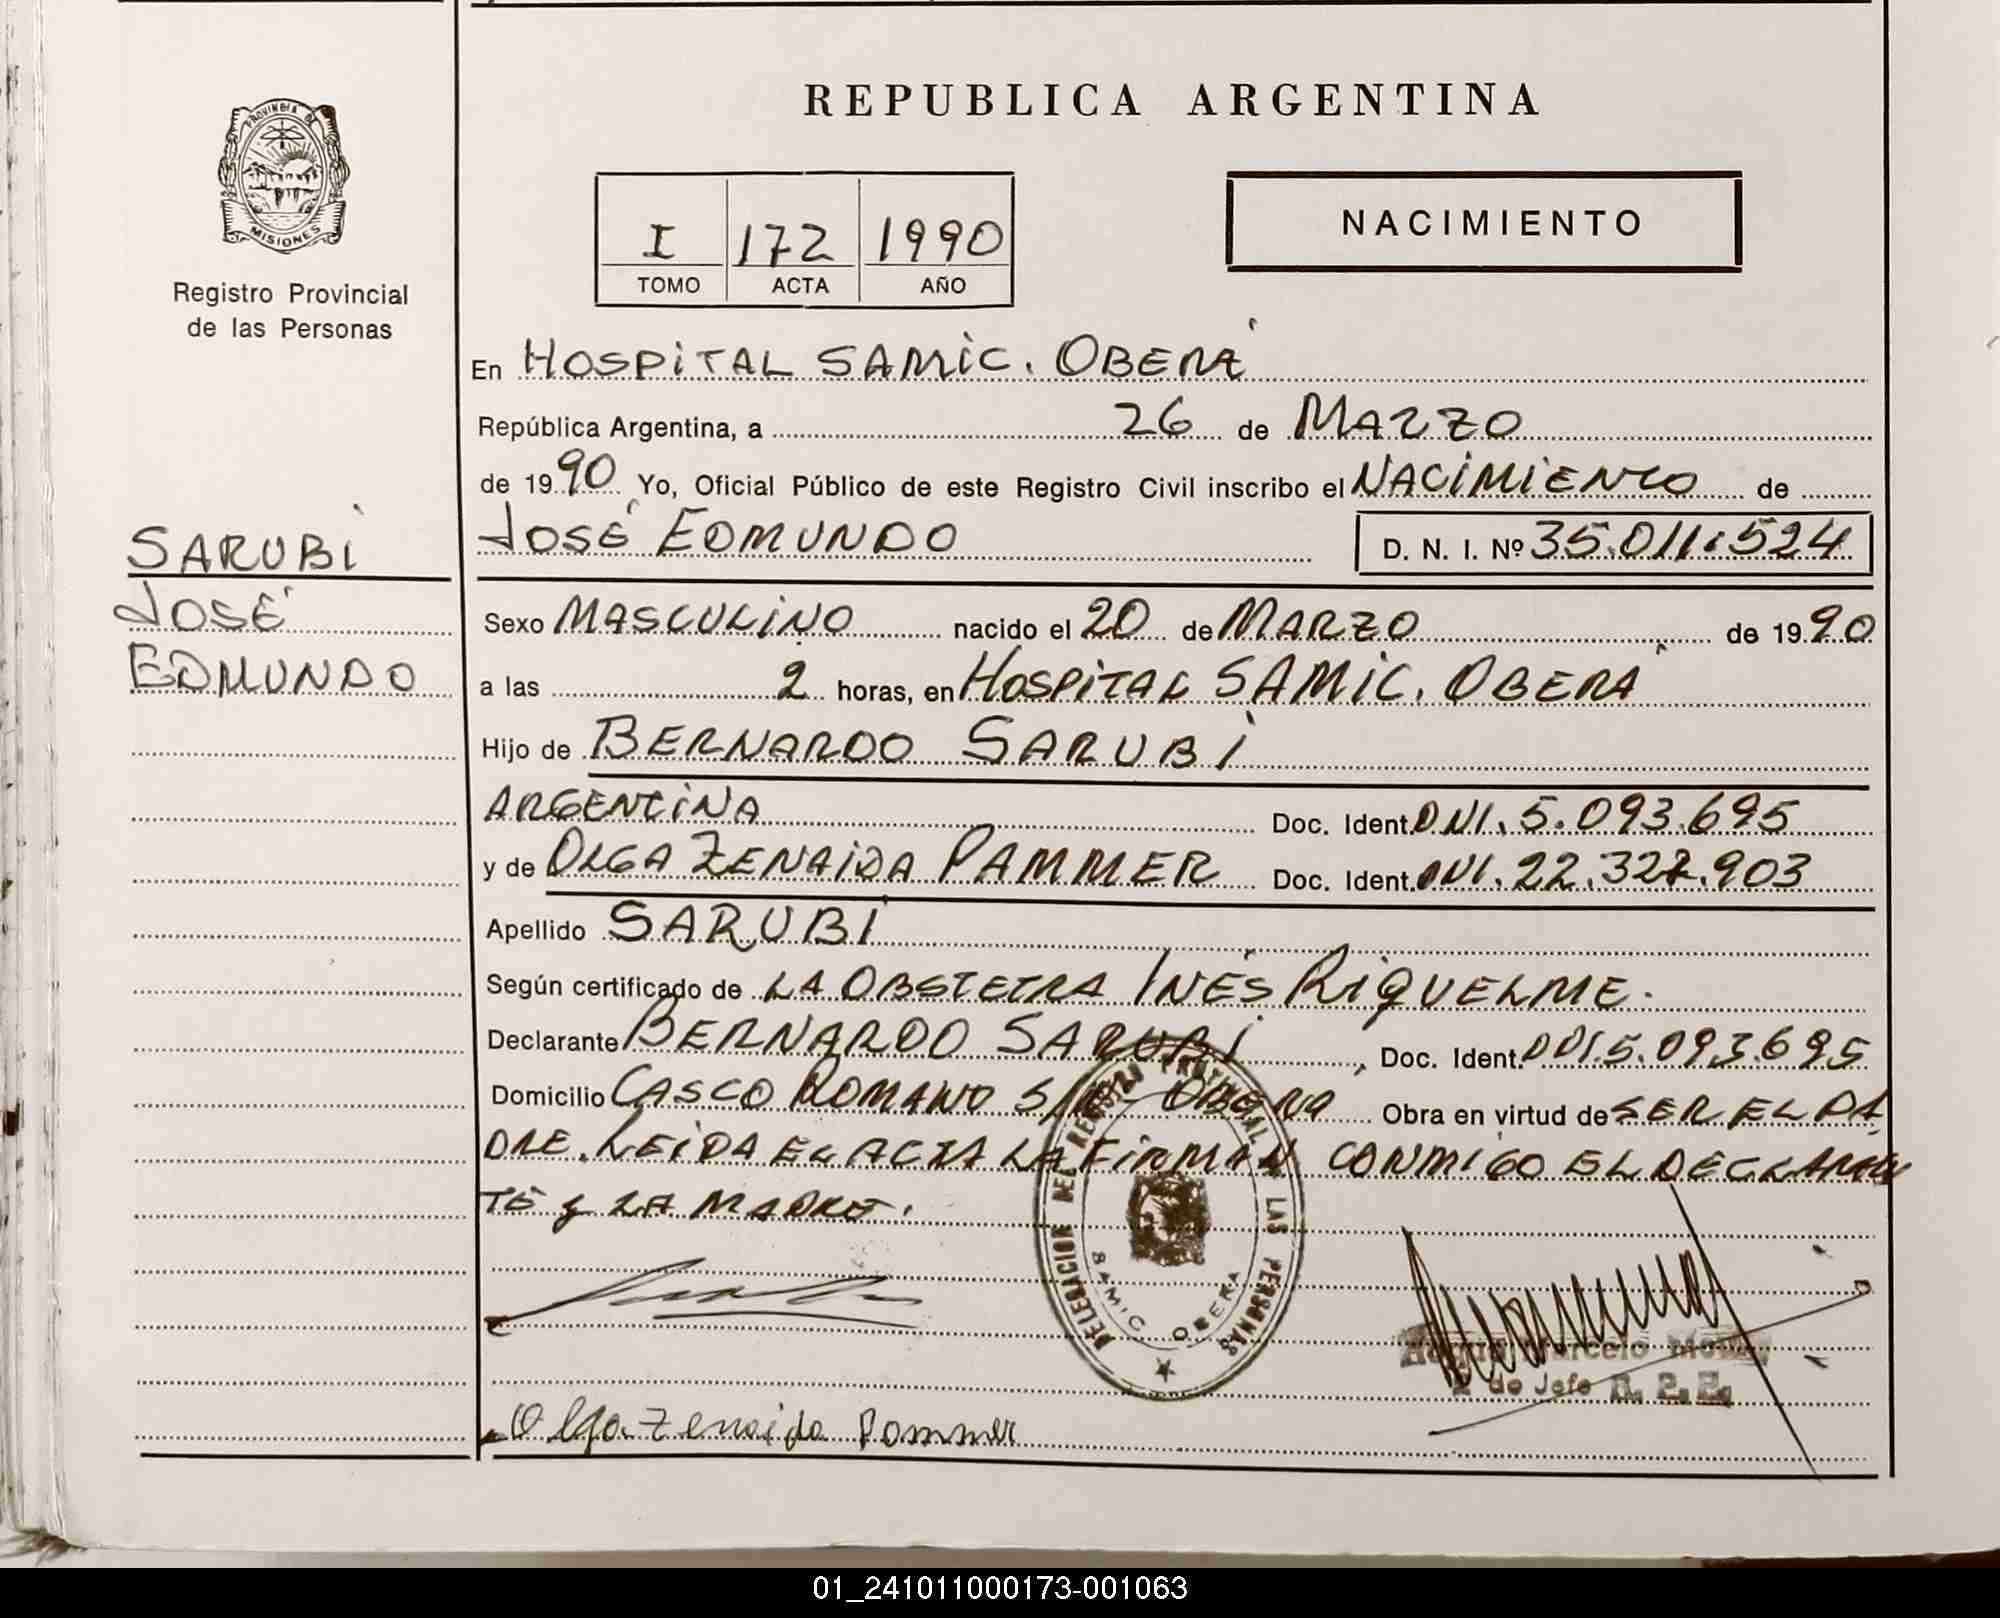 REPUBLICA ARGENTINA
PROVINCIA DE
MISIONES
Registro Provincial
de las Personas
I 172 1990
TOMO ACTA AÑO
NACIMIENTO
En HOSPITAL SAMIC. OBERÁ
República Argentina, a 26 de MARZO
de 1990 Yo, Oficial Público de este Registro Civil inscribo el NACIMIENTO de
JOSÉ EDMUNDO D. N. I. Nº 35.011.524
SARUBI
JOSÉ
EDMUNDO
Sexo MASCULINO nacido el 20 de MARZO de 1990
a las 2 horas, en HOSPITAL SAMIC. OBERÁ
Hijo de BERNARDO SARUBI
ARGENTINA Doc. Ident. DNI. 5.093.695
y de OLGA ZENAIDA PAMMER Doc. Ident. DNI. 22.327.903
Apellido SARUBI
Según certificado de LA OBSTETRA INÉS RIQUELME.
Declarante BERNARDO SARUBI, Doc. Ident. DNI. 5.093.695
Domicilio CASCO ROMANO S/Nº OBERA Obra en virtud de SER EL PA
DRE. LEIDA EL ACTA LA FIRMAN CONMIGO EL DECLARAN
TE y LA MADRE.
DELEGACION DEL REGISTRO PROVINCIAL DE LAS PERSONAS
SAMIC OBERA
Marcelo
2 de Jefe R. P. P.
Olga Zenaida Pammer
01_241011000173-001063